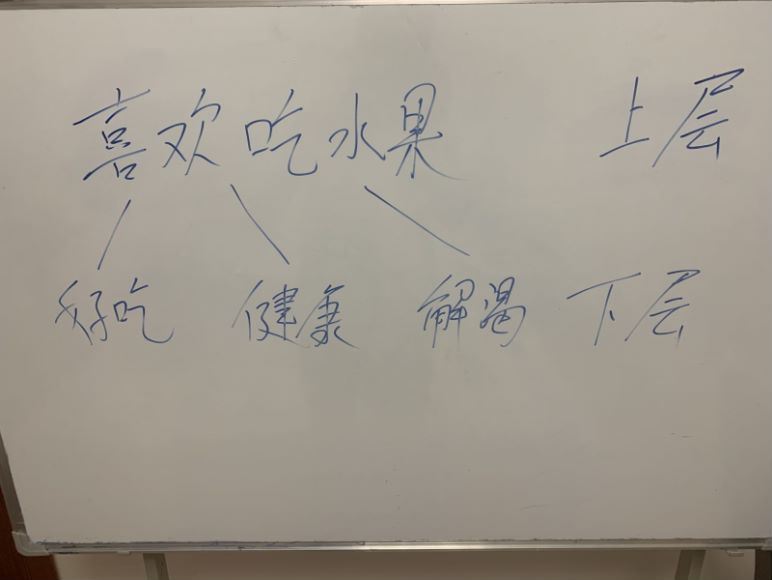 喜欢吃水果 上层
好吃 健康 解渴 下层